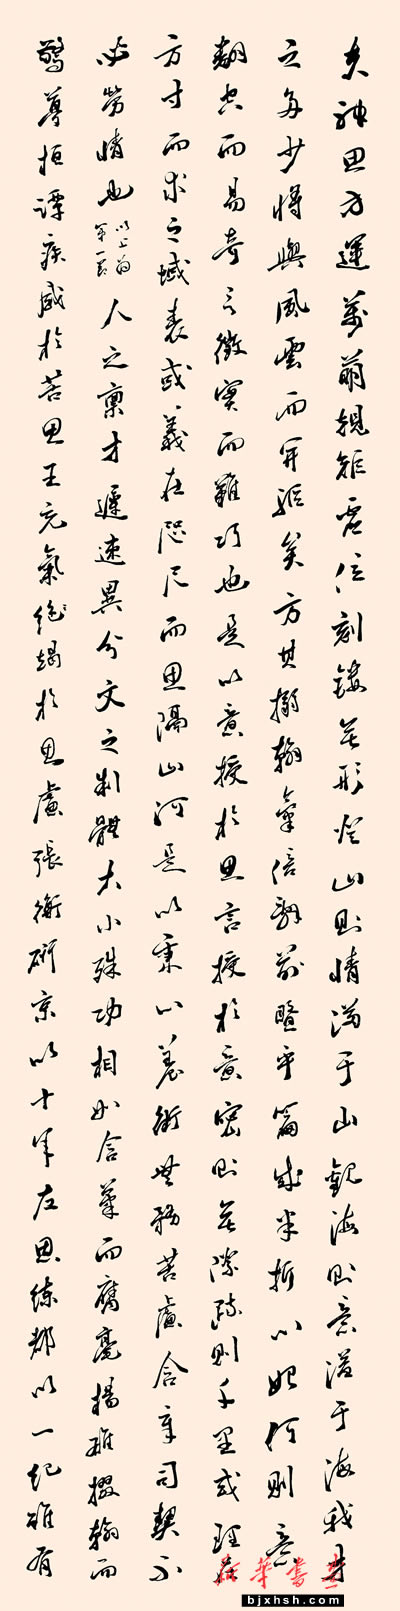 夫神思方運萬萌規矩虛位刻鏤無形登山則情滿于山觀海則意溢于海我才
之多少將與風雲而并驅矣方其搦翰氣倍辭前暨乎篇成半折心始何則意
翻空而易奇言徵實而難巧也是以意授於思言授於意密則無際疏則千里或理在
方寸而求之域表或義在咫尺而思隔山河是以秉心養術無務苦慮含章司契不
必勞情也以上為第一段人之稟才遲速異分文之制體大小殊功相如含筆而腐毫揚雄輟翰而
驚夢桓譚疾感於苦思王充氣竭於思慮張衡研京以十年左思練都以一紀雖有
新華書畫
bjxhsh.com